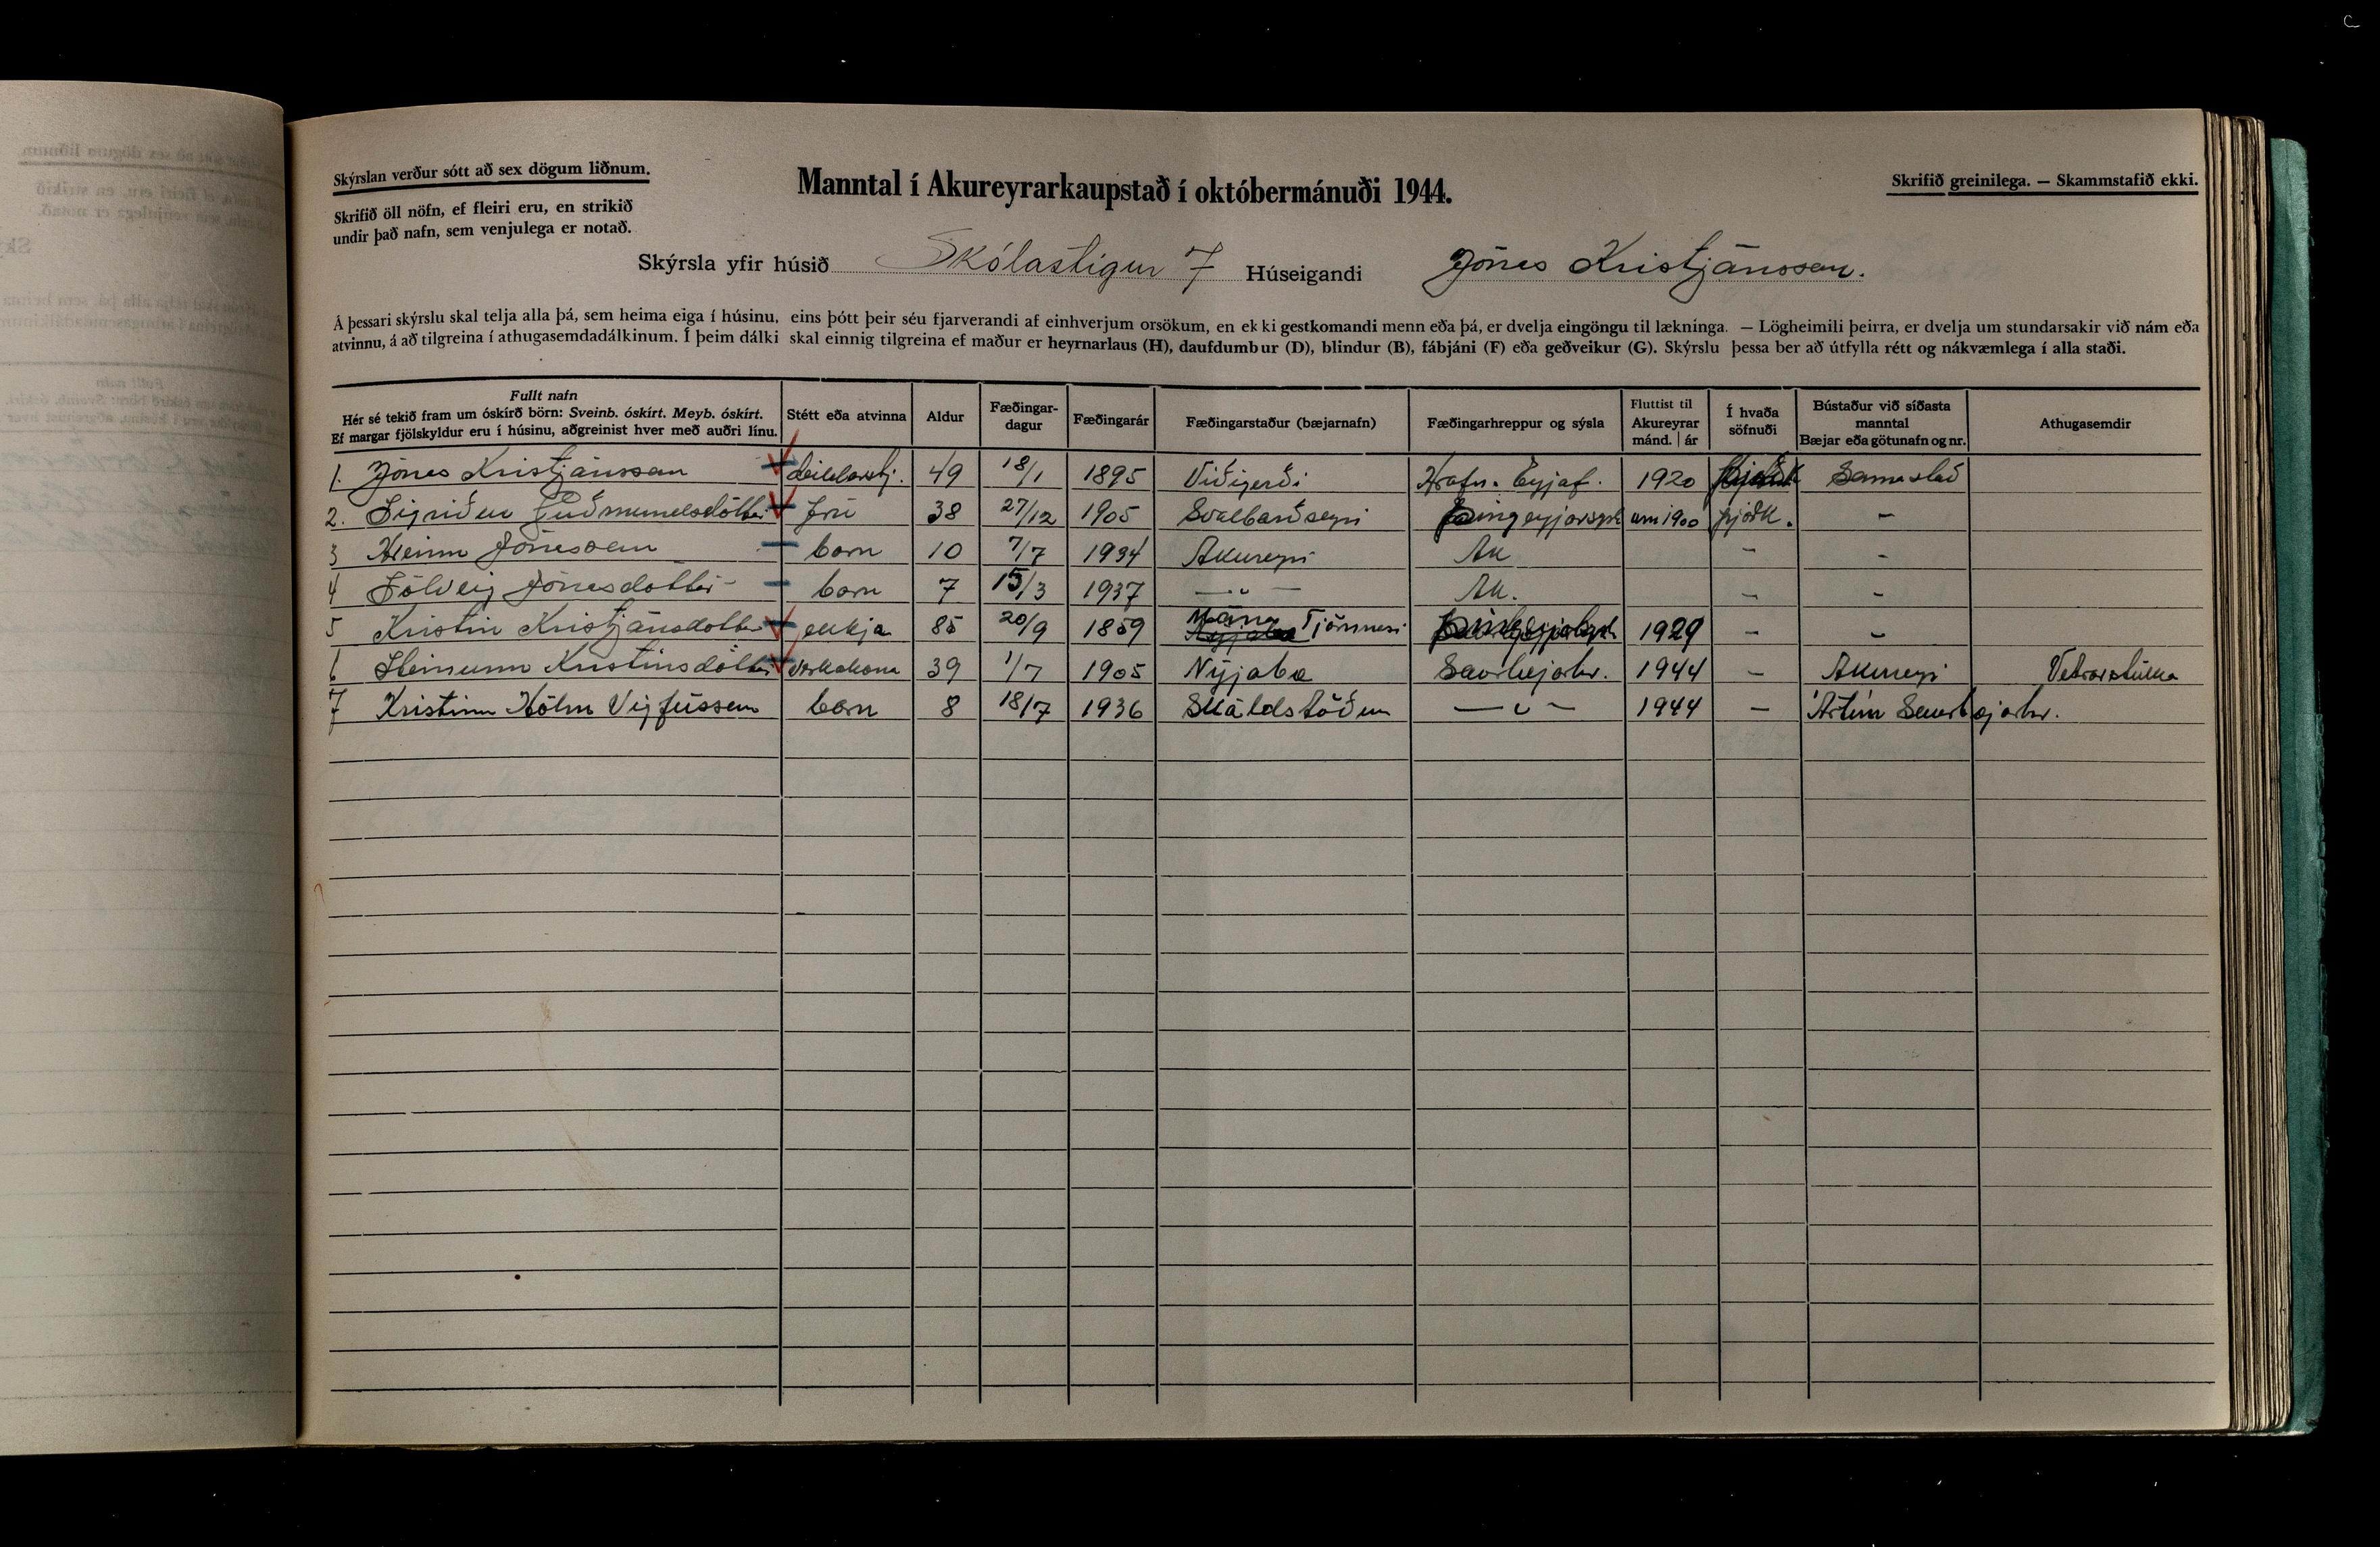 Skýrslan verður sótt að sex dögum liðnum.
Manntal í Akureyrarkaupstað í októbermánuði 1944.
Skrifið greinilega. — Skammstafið ekki.
Skrifið öll nöfn, ef fleiri eru, en strikið
undir það nafn, sem venjulega er notað.
Skýrsla yfir húsið Skólastigur 7 Húseigandi Jónas Kristjánsson.
Á þessari skýrslu skal telja alla þá, sem heima eiga í húsinu, eins þótt þeir séu fjarverandi af einhverjum orsökum, en ekki gestkomandi menn eða þá, er dvelja eingöngu til lækninga. — Lögheimili þeirra, er dvelja um stundarsakir við nám eða
atvinnu, á að tilgreina í athugasemdadálkinum. Í þeim dálki skal einnig tilgreina ef maður er heyrnarlaus (H), daufdumbur (D), blindur (B), fábjáni (F) eða geðveikur (G). Skýrslu þessa ber að útfylla rétt og nákvæmlega í alla staði.
Fullt nafn
Hér sé tekið fram um óskírð börn: Sveinb. óskírt. Meyb. óskírt.
Ef margar fjölskyldur eru í húsinu, aðgreinist hver með auðri línu.
Stétt eða atvinna
Aldur
Fæðingar-
dagur
Fæðingarár
Fæðingarstaður (bæjarnafn)
Fæðingarhreppur og sýsla
Fluttist til
Akureyrar
mánd. | ár
Í hvaða
söfnuði
Bústaður við síðasta
manntal
Bæjar eða götunafn og nr.
Athugasemdir
1. Jónas Kristjánsson 49 18/1 1895 Víðigerði Hrafn. Eyjaf. 1920 Samastað
2. Sigríður Guðmundsdóttir frú 38 27/12 1905 Svalbarðseyri Þingeyjarsýsl um 1900 þjóðk. -
3 Hreinn Jónasson barn 10 7/7 1934 Akureyri Ak - -
4 Sólveig Jónasdóttir barn 7 15/3 1937 - " - Ak. - -
5 Kristín Kristjánsdóttir ekkja 85 20/9 1859 Mána Tjörnnesi 1929 - -
6 Steinunn Kristinsdóttir Verkakona 39 1/7 1905 Nýjabæ Saurbæjarhr. 1944 - Akureyri Vetrarstúlka
7 Kristinn Hólm Vigfússon barn 8 18/7 1936 Skáldstöðum - " - 1944 - Ártún Saurbæjarhr.